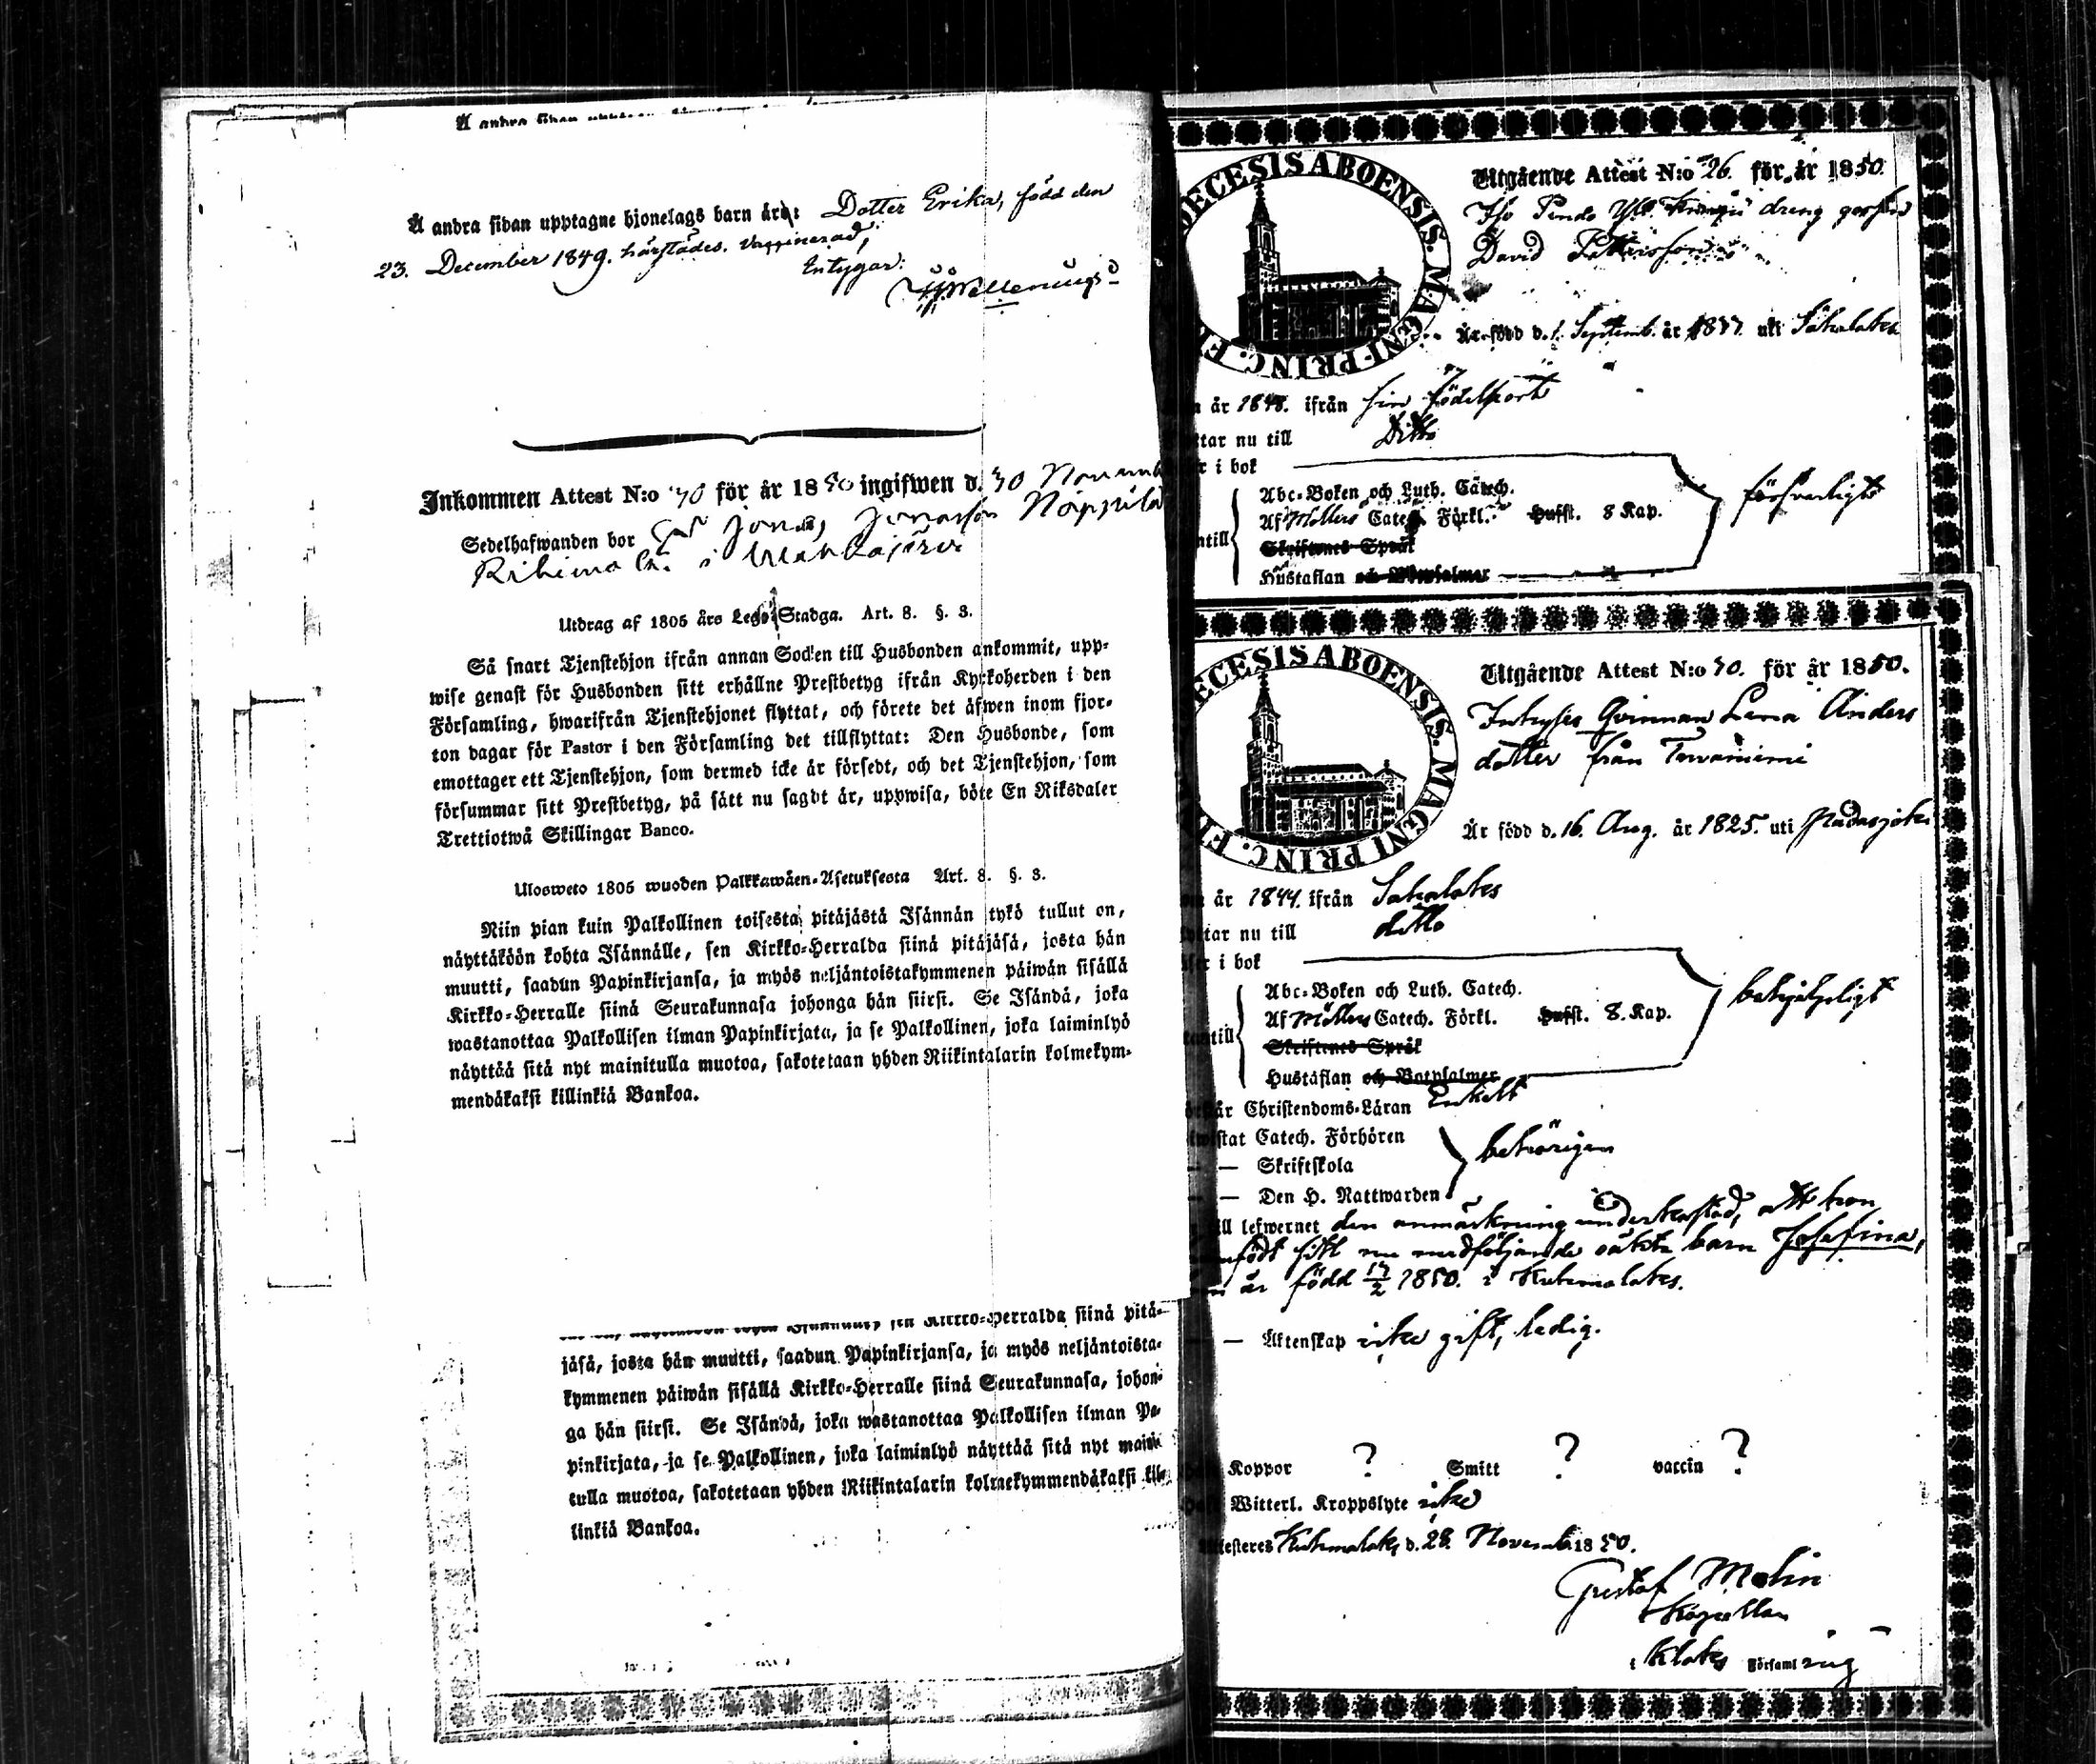 Å andra sidan upptagne hjonelags barn äro: Dotter Erika, född den
23. December 1849. härstädes. Vaccinerad,
Intygar:
Inkommen Attest N:o 70 för år 1850 ingifwen d. 30 Novemb
Sedelhafwanden bor Jonas Jonasson Näppilä
i
Utdrag af 1805 års Lego-Stadga. Art. 8. §. 3.
Så snart Tjenstehjon ifrån annan Socken till Husbonden ankommit, upp-
wise genast för Husbonden sitt erhållne Prestbetyg ifrån Kyrkoherden i den
Församling, hwarifrån Tjenstehjonet flyttat, och förete det äfwen inom fjor-
ton dagar för Pastor i den Församling det tillflyttat: Den Husbonde, som
emottager ett Tjenstehjon, som dermed icke är försedt, och det Tjenstehjon, som
försummar sitt Prestbetyg, på sätt nu sagdt är, uppwisa, böte En Riksdaler
Trettiotwå Skillingar Banco.
Ulosweto 1805 wuoden Palkkawäen-Asetuksesta Art. 8. §. 3.
Niin pian kuin Palkollinen toisesta pitäjästä Isännän tykö tullut on,
näyttäköön kohta Isännälle, sen Kirkko-Herralda siinä pitäjäsä, josta hän
muutti, saadun Papinkirjansa, ja myös neljäntoistakymmenen päiwän sisällä
Kirkko-Herralle siinä Seurakunnasa johonga hän siirsi. Se Isändä, joka
wastanottaa Palkollisen ilman Papinkirjata, ja se Palkollinen, joka laiminlyö
näyttää sitä nyt mainitulla muotoa, sakotetaan yhden Riikintalarin kolmekym-
mendäkaksi killinkiä Bankoa.
Kirkko-Herralda siinä pitä-
jäsä, josta hän muutti, saadun Papinkirjansa, ja myös neljäntoista-
kymmenen päiwän sisällä Kirkko-Herralle siinä Seurakunnasa, johon-
ga hän siirsi. Se Isändä, joka wastanottaa Palkollisen ilman Pa-
pinkirjata, ja se Palkollinen, joka laiminlyö näyttää sitä nyt maini-
tulla muotoa, sakotetaan yhden Riikintalarin kolmekymmendäkaksi kil-
linkiä Bankoa.
DECESIS ABOENSIS. MAGNI PRINC. F
Utgående Attest N:o 26. för år 1850.
dreng gossen
David
Är född d. 1. Septemb. år uti Sahalaks
år 1848. ifrån sin födelseort
ttar nu till Ditto
i bok
Abc-Boken och Luth. Catech.
Af Möllers Catech. Förkl. Husst. 8 Kap.
Skriftenes Språk
Hustaflan och Botpsalmer
försvarligt
ECESIS ABOENSIS. MAGNI PRINC. F
Utgående Attest N:o 30. för år 1850.
Inhyses Qvinnan Lena Anders
dotter från Tervaniemi
Är född d. 16. Aug. år 1825. uti Padasjoki
år 1844. ifrån Sahalaks
ttar nu till ditto
i bok
Abc-Boken och Luth. Catech.
Af Möllers Catech. Förkl. Husst. 8. Kap.
Skriftenes Språk
Hustaflan och Botpsalmer
behjelpligt
Christendoms-Läran Enkelt
istat Catech. Förhören
— Skriftskola
— — Den H. Nattwarden
behörigen
ill lefwernet den anmärkning underkastad, att hon
född sitt nu medföljande oäkta barn Josefina,
är född 17/2 1850. i Kuhmalaks.
— Äktenskap icke gift, ledig.
Koppor ? Smitt ? vaccin ?
Witterl. Kroppslyte icke
testeres Kuhmalaks, d. 28. Novemb. 1850.
Gustaf Molin
Kapellan
i Klaks Församling